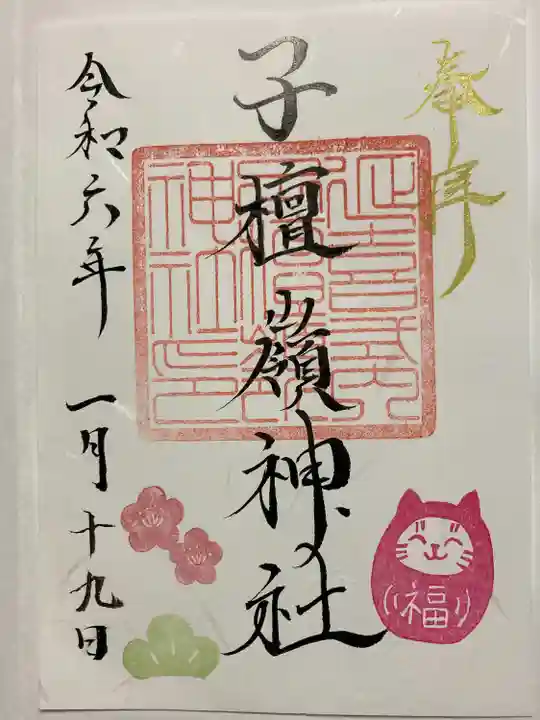 奉拝
子檀嶺神社
令和六年 一月十九日
福